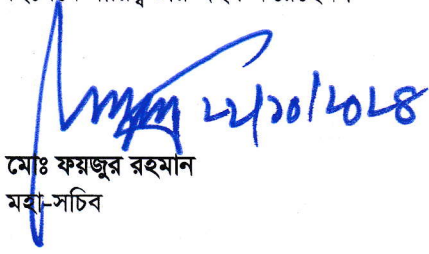 ২২/১০/২০২৪
মোঃ ফয়জুর রহমান
মহা-সচিব